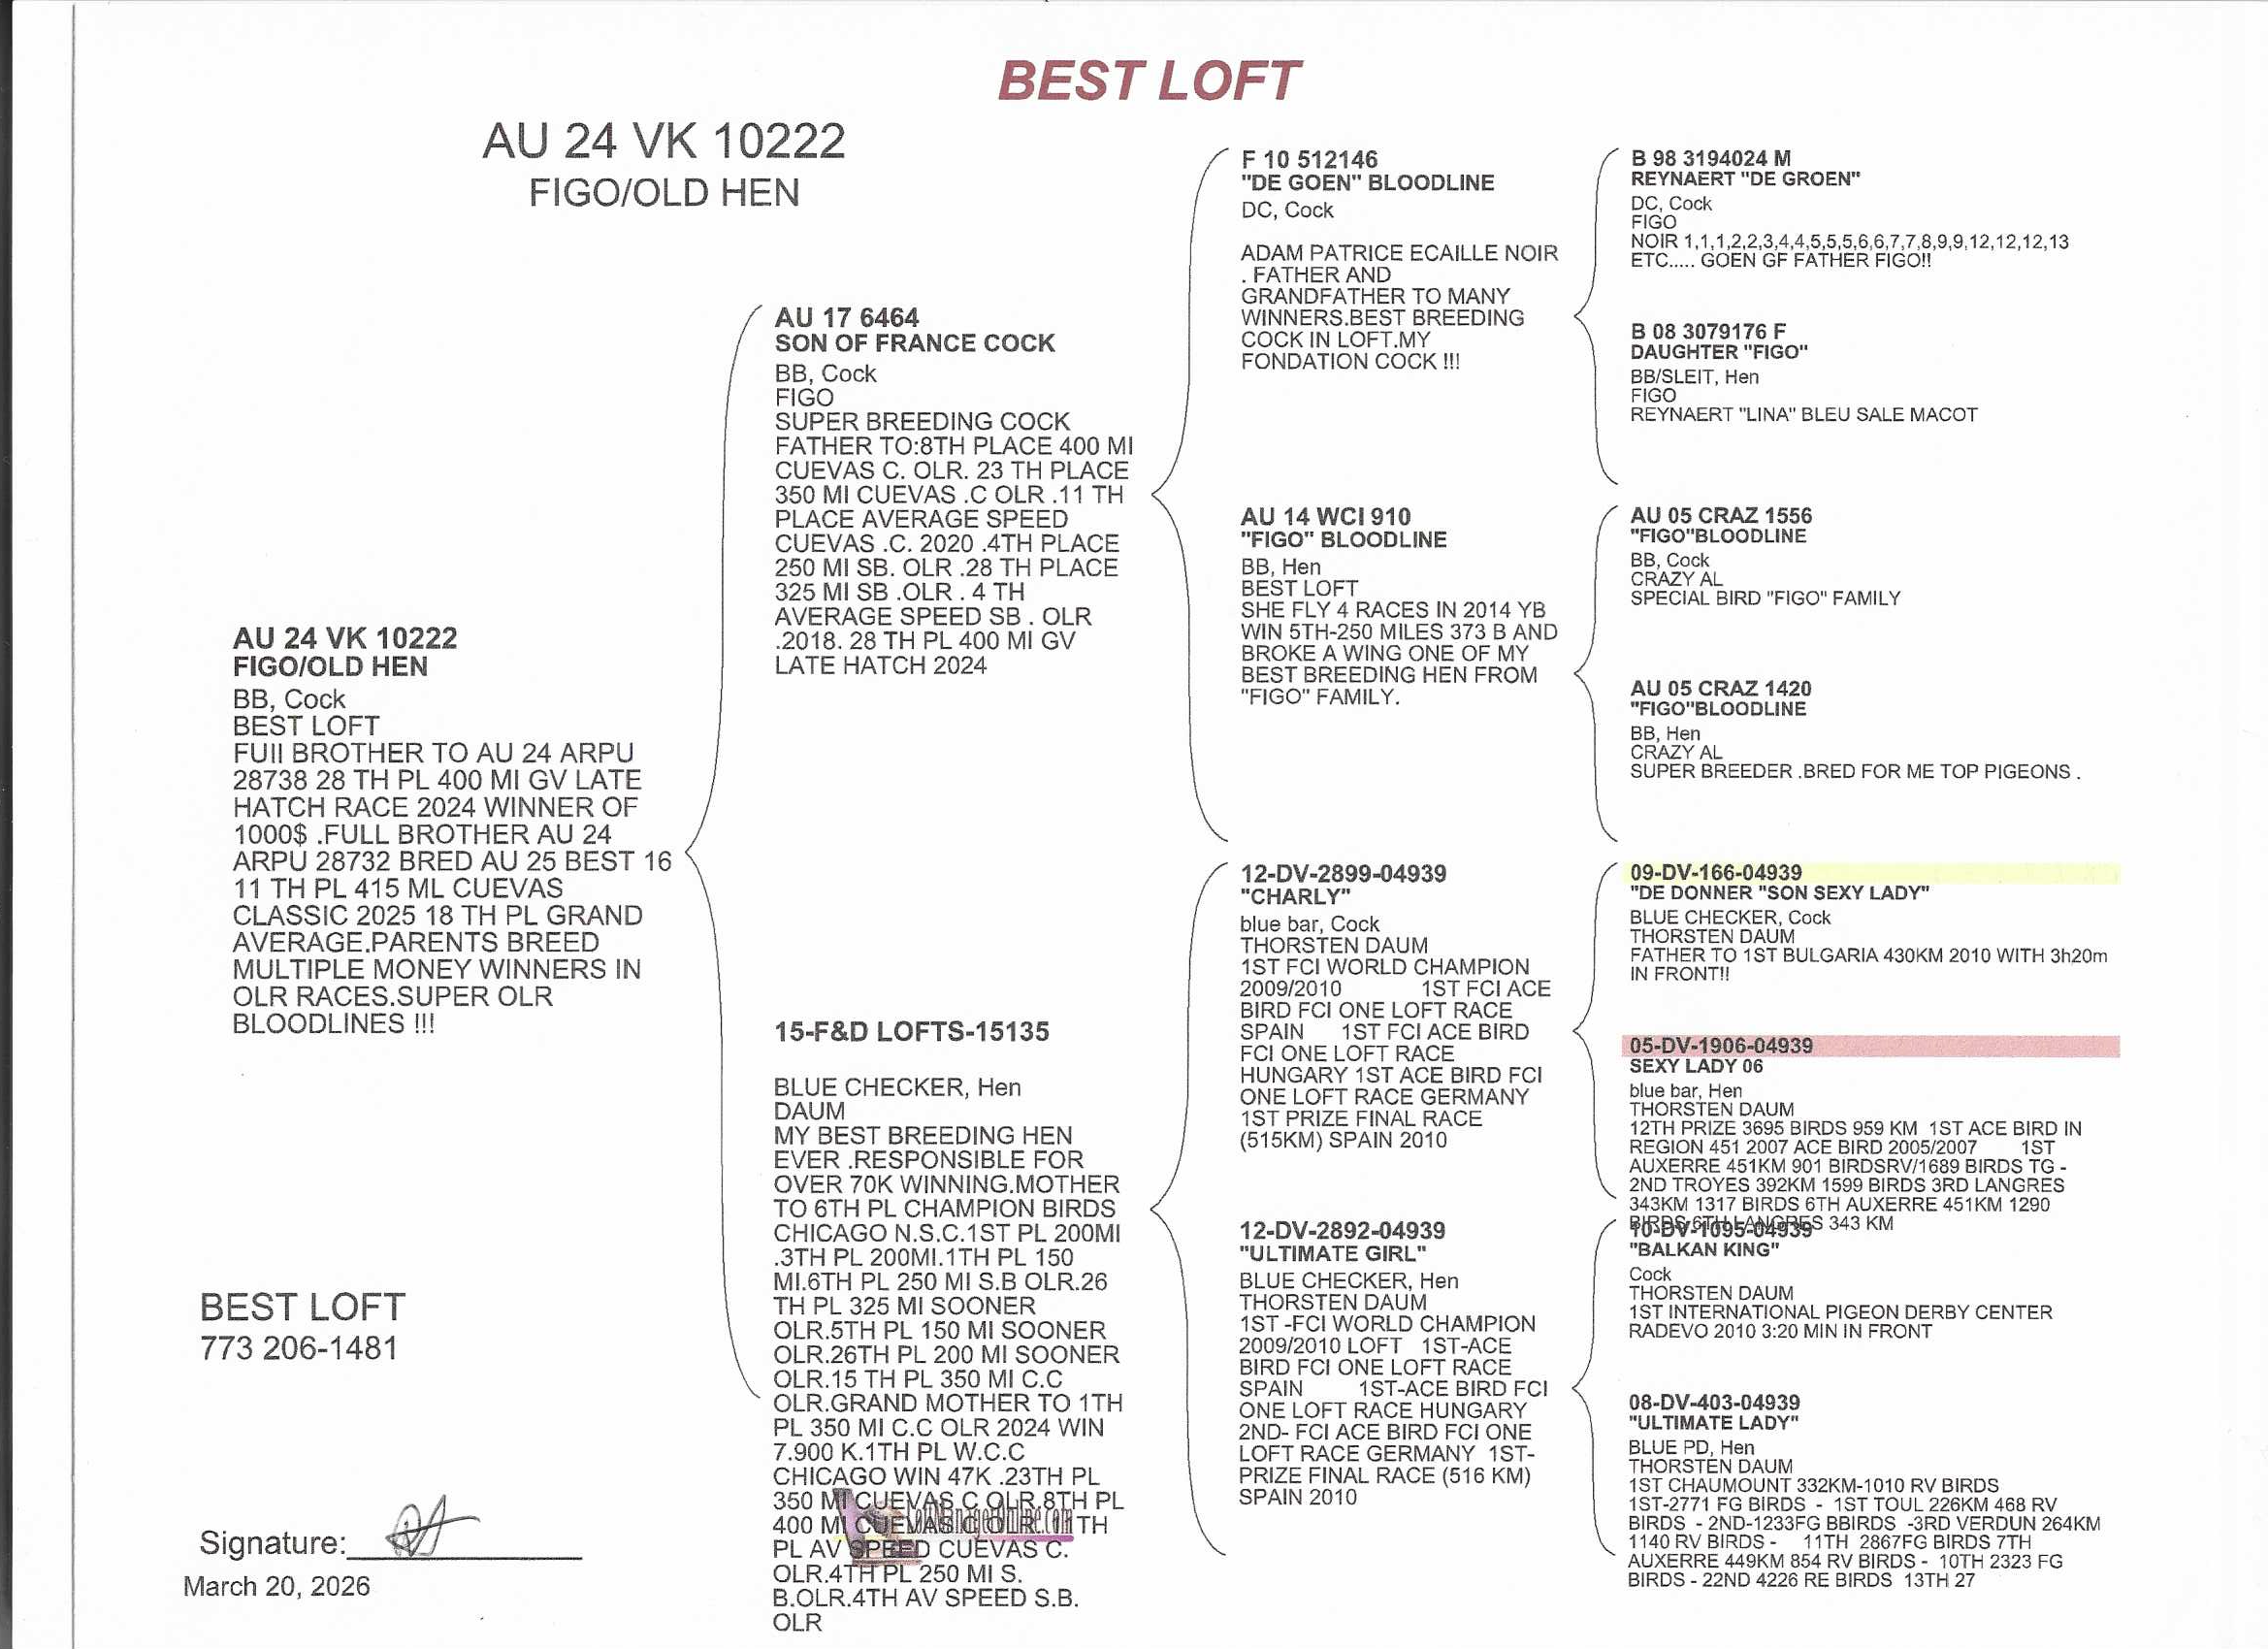 BEST LOFT
AU 24 VK 10222
FIGO/OLD HEN
AU 24 VK 10222
FIGO/OLD HEN
BB, Cock
BEST LOFT
FUII BROTHER TO AU 24 ARPU
28738 28 TH PL 400 MI GV LATE
HATCH RACE 2024 WINNER OF
1000$ .FULL BROTHER AU 24
ARPU 28732 BRED AU 25 BEST 16
11 TH PL 415 ML CUEVAS
CLASSIC 2025 18 TH PL GRAND
AVERAGE.PARENTS BREED
MULTIPLE MONEY WINNERS IN
OLR RACES.SUPER OLR
BLOODLINES !!!
BEST LOFT
773 206-1481
Signature:
March 20, 2026
AU 17 6464
SON OF FRANCE COCK
BB, Cock
FIGO
SUPER BREEDING COCK
FATHER TO:8TH PLACE 400 MI
CUEVAS C. OLR. 23 TH PLACE
350 MI CUEVAS .C OLR .11 TH
PLACE AVERAGE SPEED
CUEVAS .C. 2020 .4TH PLACE
250 MI SB. OLR .28 TH PLACE
325 MI SB .OLR . 4 TH
AVERAGE SPEED SB . OLR
.2018. 28 TH PL 400 MI GV
LATE HATCH 2024
15-F&D LOFTS-15135
BLUE CHECKER, Hen
DAUM
MY BEST BREEDING HEN
EVER .RESPONSIBLE FOR
OVER 70K WINNING.MOTHER
TO 6TH PL CHAMPION BIRDS
CHICAGO N.S.C.1ST PL 200MI
.3TH PL 200MI.1TH PL 150
MI.6TH PL 250 MI S.B OLR.26
TH PL 325 MI SOONER
OLR.5TH PL 150 MI SOONER
OLR.26TH PL 200 MI SOONER
OLR.15 TH PL 350 MI C.C
OLR.GRAND MOTHER TO 1TH
PL 350 MI C.C OLR 2024 WIN
7.900 K.1TH PL W.C.C
CHICAGO WIN 47K .23TH PL
350 MI CUEVAS C OLR.8TH PL
400 MI CUEVAS C OLR. 11 TH
PL AV SPEED CUEVAS C.
OLR.4TH PL 250 MI S.
B.OLR.4TH AV SPEED S.B.
OLR
F 10 512146
"DE GOEN" BLOODLINE
DC, Cock
ADAM PATRICE ECAILLE NOIR
. FATHER AND
GRANDFATHER TO MANY
WINNERS.BEST BREEDING
COCK IN LOFT.MY
FONDATION COCK !!!
AU 14 WCI 910
"FIGO" BLOODLINE
BB, Hen
BEST LOFT
SHE FLY 4 RACES IN 2014 YB
WIN 5TH-250 MILES 373 B AND
BROKE A WING ONE OF MY
BEST BREEDING HEN FROM
"FIGO" FAMILY.
12-DV-2899-04939
"CHARLY"
blue bar, Cock
THORSTEN DAUM
1ST FCI WORLD CHAMPION
2009/2010 1ST FCI ACE
BIRD FCI ONE LOFT RACE
SPAIN 1ST FCI ACE BIRD
FCI ONE LOFT RACE
HUNGARY 1ST ACE BIRD FCI
ONE LOFT RACE GERMANY
1ST PRIZE FINAL RACE
(515KM) SPAIN 2010
12-DV-2892-04939
"ULTIMATE GIRL"
BLUE CHECKER, Hen
THORSTEN DAUM
1ST -FCI WORLD CHAMPION
2009/2010 LOFT 1ST-ACE
BIRD FCI ONE LOFT RACE
SPAIN 1ST-ACE BIRD FCI
ONE LOFT RACE HUNGARY
2ND- FCI ACE BIRD FCI ONE
LOFT RACE GERMANY 1ST-
PRIZE FINAL RACE (516 KM)
SPAIN 2010
B 98 3194024 M
REYNAERT "DE GROEN"
DC, Cock
FIGO
NOIR 1,1,1,2,2,3,4,4,5,5,5,6,6,7,7,8,9,9,12,12,12,13
ETC..... GOEN GF FATHER FIGO!!
B 08 3079176 F
DAUGHTER "FIGO"
BB/SLEIT, Hen
FIGO
REYNAERT "LINA" BLEU SALE MACOT
AU 05 CRAZ 1556
"FIGO"BLOODLINE
BB, Cock
CRAZY AL
SPECIAL BIRD "FIGO" FAMILY
AU 05 CRAZ 1420
"FIGO"BLOODLINE
BB, Hen
CRAZY AL
SUPER BREEDER .BRED FOR ME TOP PIGEONS .
09-DV-166-04939
"DE DONNER "SON SEXY LADY"
BLUE CHECKER, Cock
THORSTEN DAUM
FATHER TO 1ST BULGARIA 430KM 2010 WITH 3h20m
IN FRONT!!
05-DV-1906-04939
SEXY LADY 06
blue bar, Hen
THORSTEN DAUM
12TH PRIZE 3695 BIRDS 959 KM 1ST ACE BIRD IN
REGION 451 2007 ACE BIRD 2005/2007 1ST
AUXERRE 451KM 901 BIRDSRV/1689 BIRDS TG -
2ND TROYES 392KM 1599 BIRDS 3RD LANGRES
343KM 1317 BIRDS 6TH AUXERRE 451KM 1290
BIRDS 6TH LANGRES 343 KM
10-DV-1095-04939
"BALKAN KING"
Cock
THORSTEN DAUM
1ST INTERNATIONAL PIGEON DERBY CENTER
RADEVO 2010 3:20 MIN IN FRONT
08-DV-403-04939
"ULTIMATE LADY"
BLUE PD, Hen
THORSTEN DAUM
1ST CHAUMOUNT 332KM-1010 RV BIRDS
1ST-2771 FG BIRDS - 1ST TOUL 226KM 468 RV
BIRDS - 2ND-1233FG BBIRDS -3RD VERDUN 264KM
1140 RV BIRDS - 11TH 2867FG BIRDS 7TH
AUXERRE 449KM 854 RV BIRDS - 10TH 2323 FG
BIRDS - 22ND 4226 RE BIRDS 13TH 27